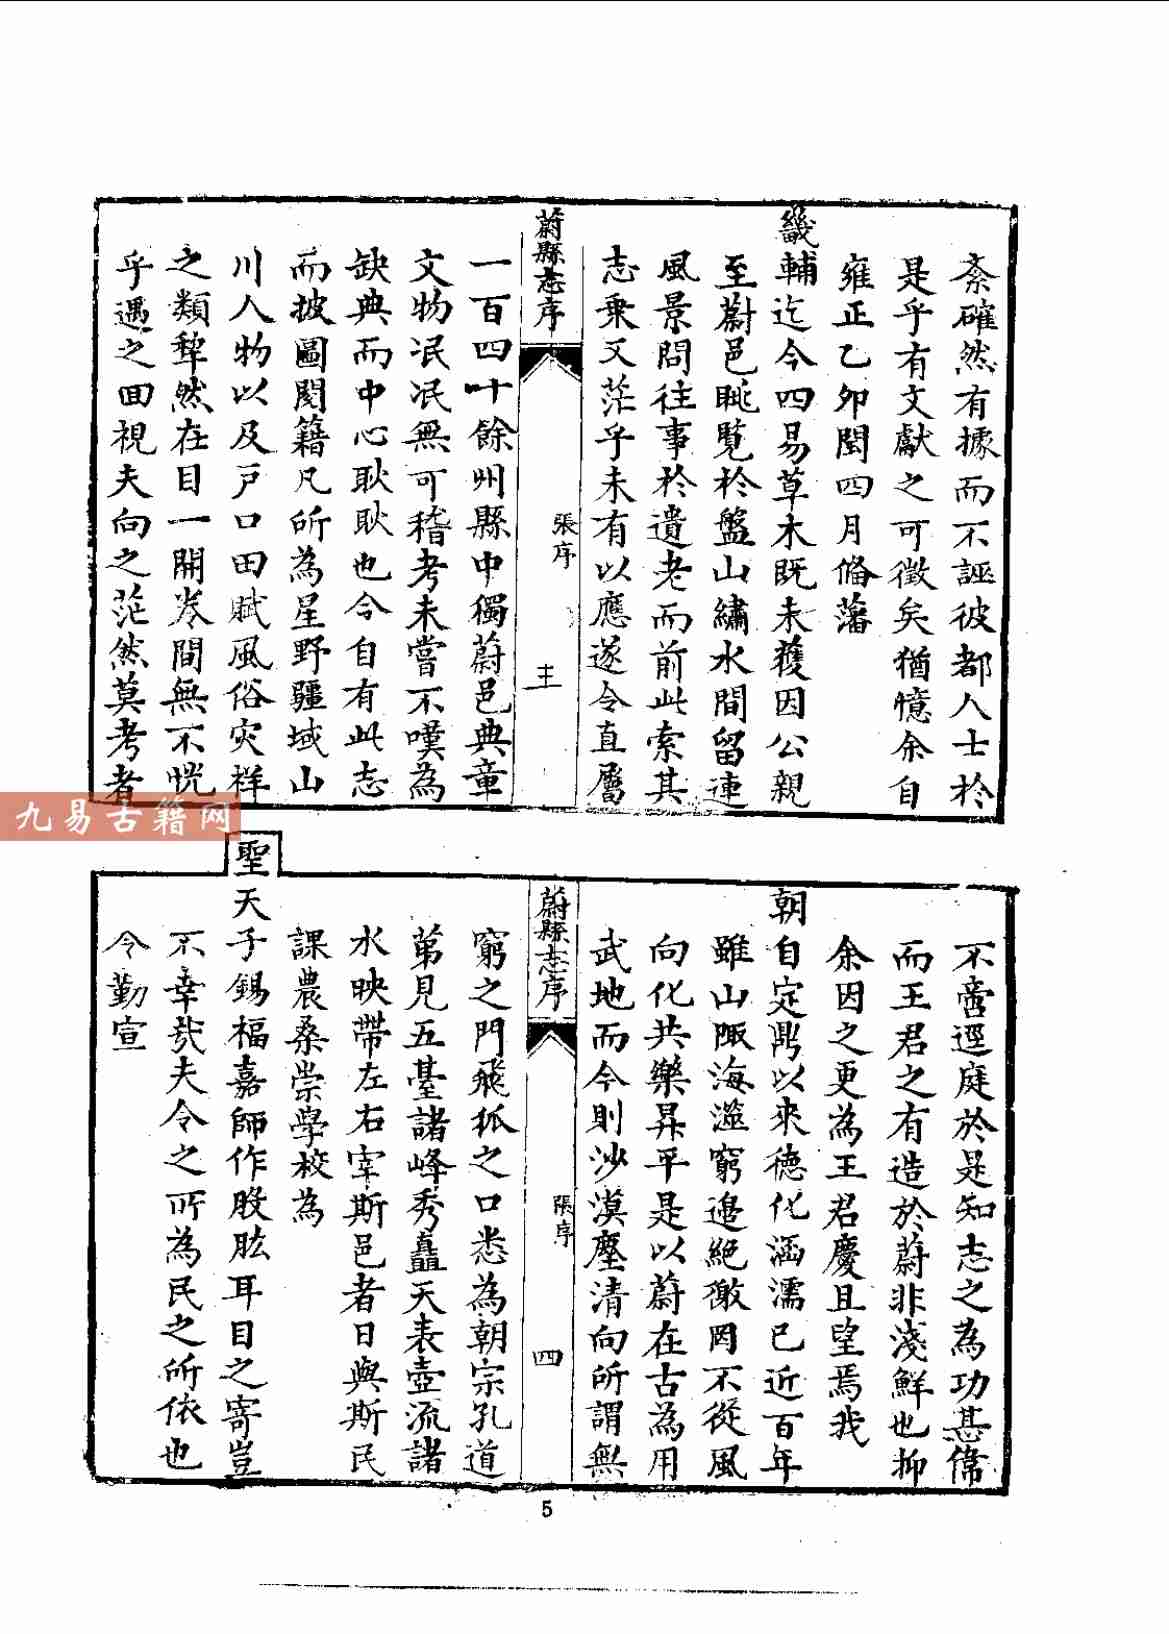 紊確然有據而不誣彼都人士於
是乎有文獻之可徵矣猶憶余自
雍正乙卯閏四月偹藩
畿輔迄今四易草木既未獲因公親
至蔚邑眺覧於盤山繡水間留連
風景問往事於遺老而前此索其
志乗又茫乎未有以應遂令直屬
蔚縣志序
張序
一百四十餘州縣中獨蔚邑典章
文物冺冺無可稽考未嘗不嘆為
缺典而中心耿耿也今自有此志
而披圖閲籍凡所為星野疆域山
川人物以及戸口田賦風俗灾祥
之類犂然在目一開卷間無不恍
乎遇之囬視夫向之茫然莫考者
九易古籍网
不啻逕庭於是知志之為功甚偉
而王君之有造於蔚非淺鮮也抑
余因之更為王君慶且望焉我
朝自定鼎以來德化涵濡已近百年
雖山陬海澨窮邉絶徼罔不從風
向化共樂昇平是以蔚在古為用
武地而今則沙漠塵清向所謂無
蔚縣志序
張序
四
窮之門飛狐之口悉為朝宗孔道
第見五臺諸峰秀矗天表壺流諸
水映帶左右宰斯邑者日與斯民
課農桑崇學校為
聖天子錫福嘉師作股肱耳目之寄豈
不幸㢤夫令之所為民之所依也
令勤宣
5